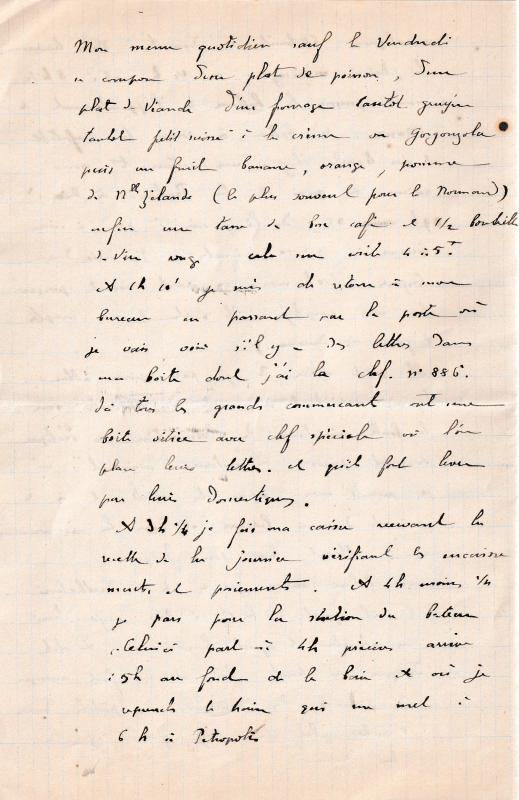 Mon menu quotidien sauf le Vendredi
se compose d'un plat de poisson, d'un
plat de Viande d'un fromage tantôt gruyère
tantôt petit suisse à la crème ou Gorgonzola
puis un fruit banane, orange, pomme
de Nlle Zélande (le plus souvent pour le Normand)
enfin une tasse de bon café et 1/2 bouteille
de vin rouge cela me coûte 4 à 5f
A 1h 10' je suis de retour à mon
bureau en passant par la poste où
je vais voir s'il y a des lettres dans
ma boîte dont j'ai la clef. n° 886.
Ici tous les grands commercant ont une
boîte vitrée avec clef spéciale où l'on
place leurs lettres. et qu'ils font lever
par leurs domestiques.
A 3h 1/4 je fais ma caisse recevant la
recette de la journée vérifiant les encaisse
ments et paiements. A 4h moins 1/4
je pars pour la station du bateau
Celui-ci part à 4h précises arrive
à 5h au fond de la baie et où je
reprends le train qui me met à
6 h à Petropolis